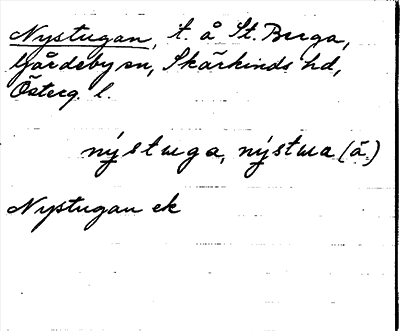 Nystugan, t. å St. Berga,
Gårdeby sn, Skärkinds hd,
Österg. l.
nýstuga, nýstua (ä)
Nystugan ek